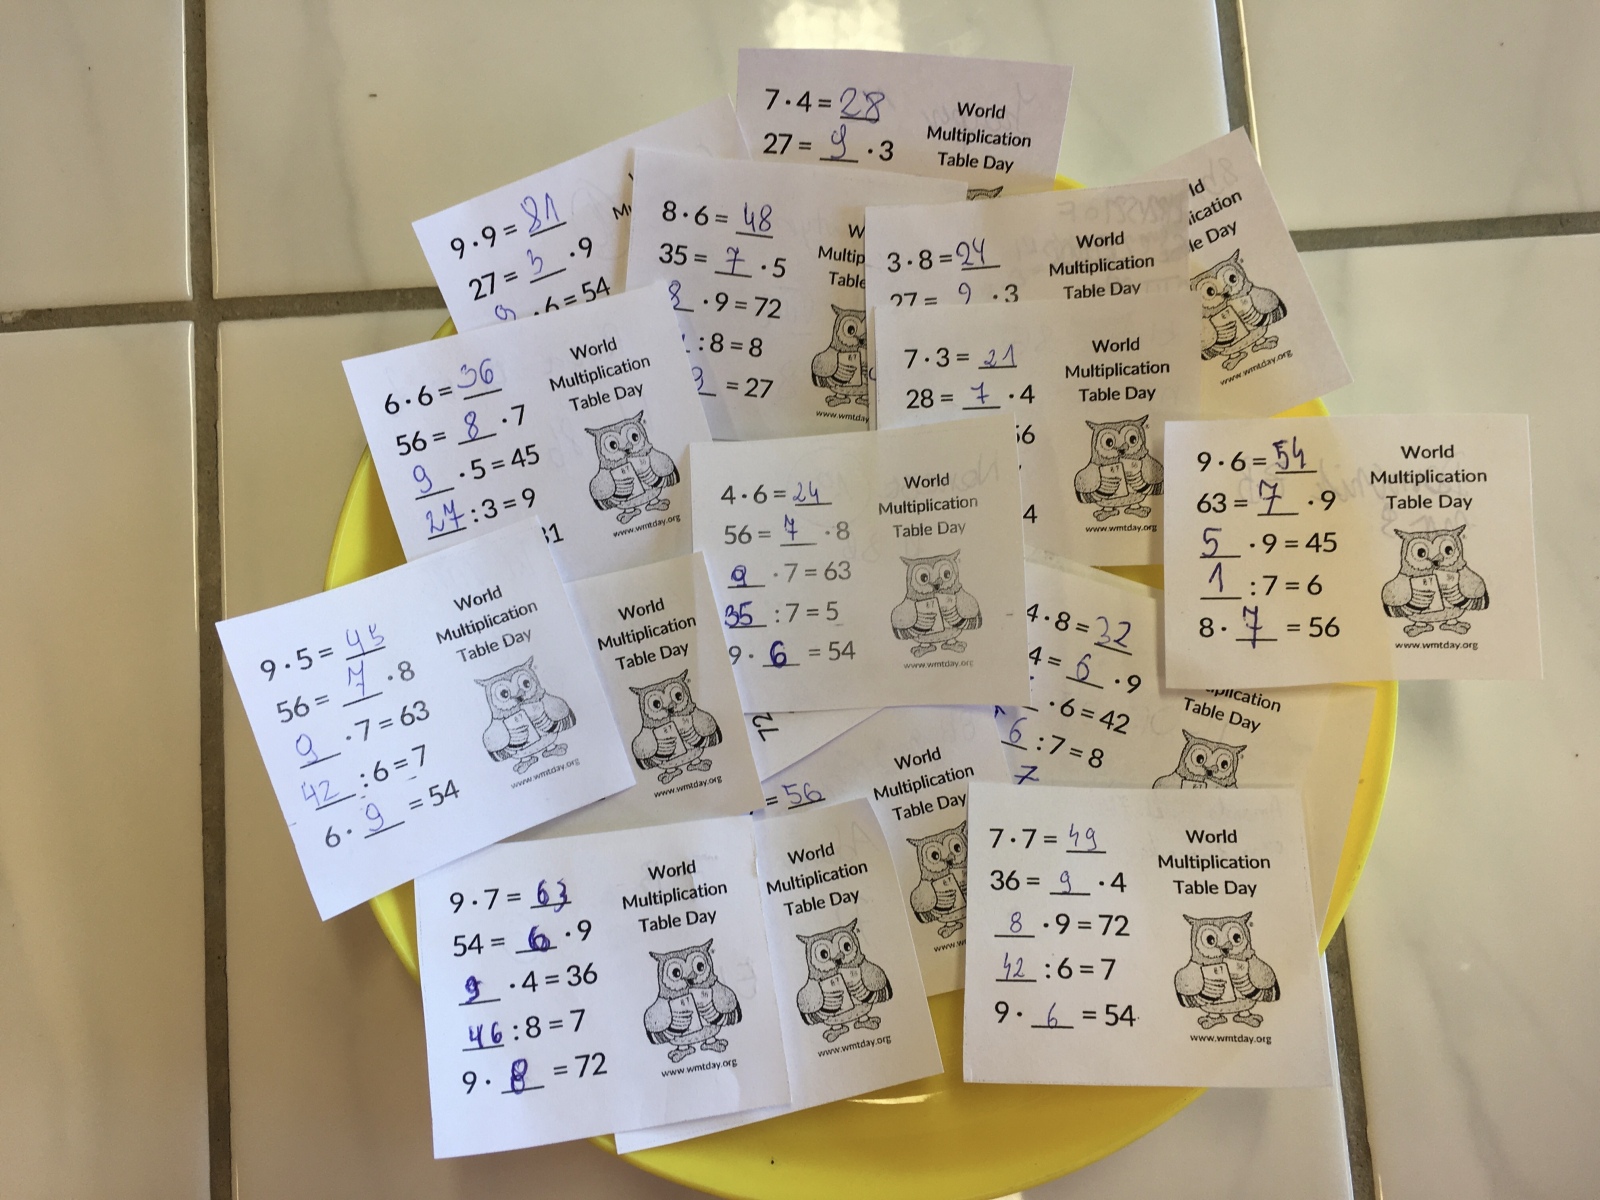 7 · 4 = 28
27 = 9 · 3
World
Multiplication
Table Day
9 · 9 = 81
27 = 3 · 9
9 · 6 = 54
8 · 6 = 48
35 = 7 · 5
8 · 9 = 72
: 8 = 8
3 = 27
www.wmtday
3 · 8 = 24
27 = 9 · 3
World
Multiplication
Table Day
www.wmtday.org
6 · 6 = 36
56 = 8 · 7
9 · 5 = 45
27 : 3 = 9
World
Multiplication
Table Day
www.wmtday.org
7 · 3 = 21
28 = 7 · 4
4
World
Multiplication
Table Day
www.wmtday.org
9 · 6 = 54
63 = 7 · 9
5 · 9 = 45
1 : 7 = 6
8 · 7 = 56
World
Multiplication
Table Day
www.wmtday.org
4 · 6 = 24
56 = 7 · 8
9 · 7 = 63
35 : 7 = 5
9 · 6 = 54
World
Multiplication
Table Day
www.wmtday.org
9 · 5 = 45
56 = 7 · 8
9 · 7 = 63
42 : 6 = 7
6 · 9 = 54
World
Multiplication
Table Day
www.wmtday.org
World
Multiplication
Table Day
www.wmtday.org
4 · 8 = 32
4 = 6 · 9
· 6 = 42
6 : 7 = 8
7
Table Day
= 56
World
Multiplication
Table Day
9 · 7 = 63
54 = 6 · 9
9 · 4 = 36
46 : 8 = 7
9 · 8 = 72
World
Multiplication
Table Day
www.wmtday.org
World
Multiplication
Table Day
www.wmtday.org
7 · 7 = 49
36 = 9 · 4
8 · 9 = 72
42 : 6 = 7
9 · 6 = 54
World
Multiplication
Table Day
www.wmtday.org